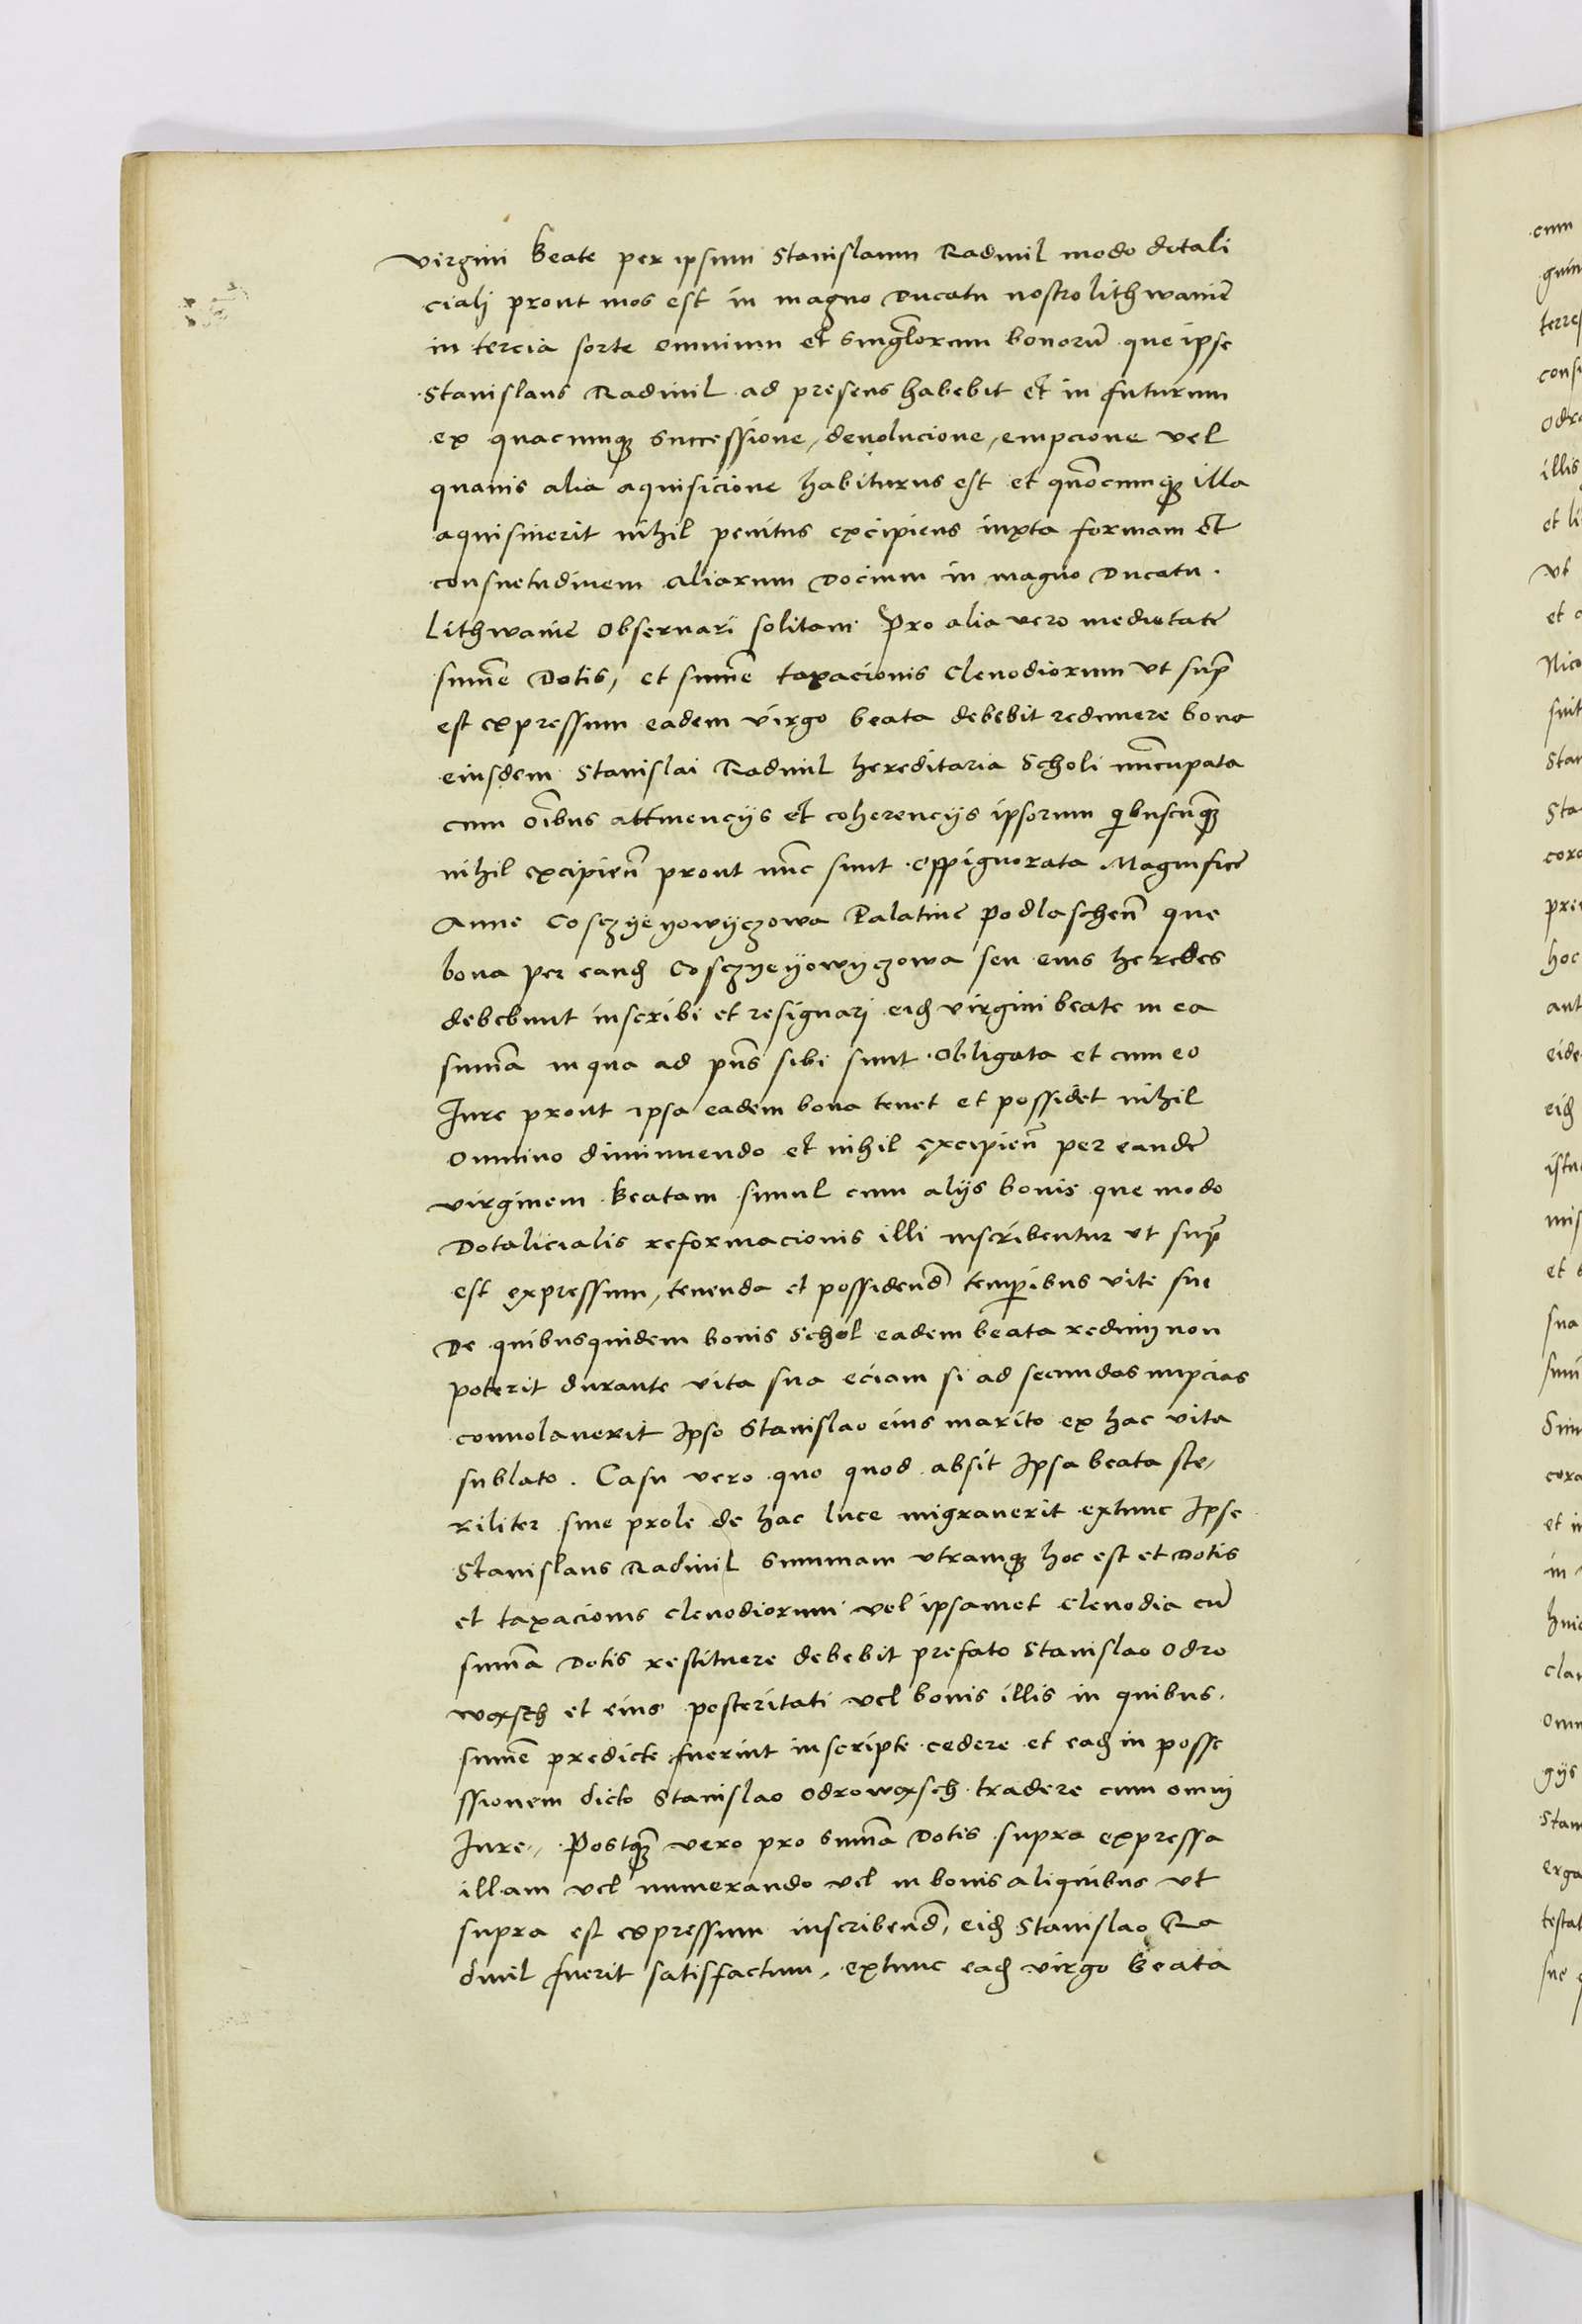 virgini beate per ipsum Stanislaum Radivil modo dotali
cialj prout mos est in magno Ducatu nostro lithwaniē
in tercia sorte omnium et singlorum bonorū que ipse
Stanislaus Radivil ad presens habebit et in futurum
ex quacumqȝ successione, devolucione, empcione vel
quavis alia aquisicione habiturus est et quōcumqȝ illa
aquisiverit nihil penitus excipiens iuxta formam et
consuetudinem aliarum Docium in magno Ducatu
Lithwaniē observari solitam Pro alia vero medietate
summe Dotis, et summe taxacionis clenodiorum ut supr̄
est expressum eadem virgo beata debebit redimere bona
eiusdem Stanislai Radivil hereditaria Scholi nūcupata
cum oībus attinencijs et coherencijs ipsorum qibuscūqȝ
nihil excipien̄ prout nūc sunt oppignorata Magnifice
Anne Cosczyeyowyczowa Palatine podlaschen̄ que
bona per eandē Cosczyeyowyczowa seu eius heredes
debebunt inscribi et resignari eidē virgini beate in ea
summa in qua ad pn̄s sibi sunt obligata et cum eo
Iure prout ipsa eadem bona tenet et possidet nihil
omnino diminuendo et nihil excipien̄ per eandē
virginem beatam simul cum alijs bonis que modo
Dotalicialis reformacionis illi inscribentur ut supr̄
est expressum, tenenda et possidend̄ temp̄ibus vite sue
De quibusquidem bonis Schol eadem beata redimj non
poterit durante vita sua eciam si ad secundas nupcias
convolaverit Ipso Stanislao eius marito ex hac vita
sublato. Casu vero quo quod absit Ipsa beata ste,
riliter sine prole de hac luce migraverit extunc Ipse
Stanislaus Radivil Summam utramqȝ hoc est et Dotis
et taxacionis clenodiorum vel ipsamet clenodia cū
summa Dotis restituere debebit prefato Stanislao Odro
woxsch et eius posteritati vel bonis illis in quibus
summe predicte fuerint inscripte cedere et eadē in posse
ssionem dicto Stanislao Odrowoxsch tradere cum omnj
Iure. Postqȝ vero pro summa Dotis supra expressa
illam vel numerando vel in bonis aliquibus ut
supra est expressum inscribend̄, eidē Stanislao Ra
divil fuerit satisfactum, extunc eadē virgo beata